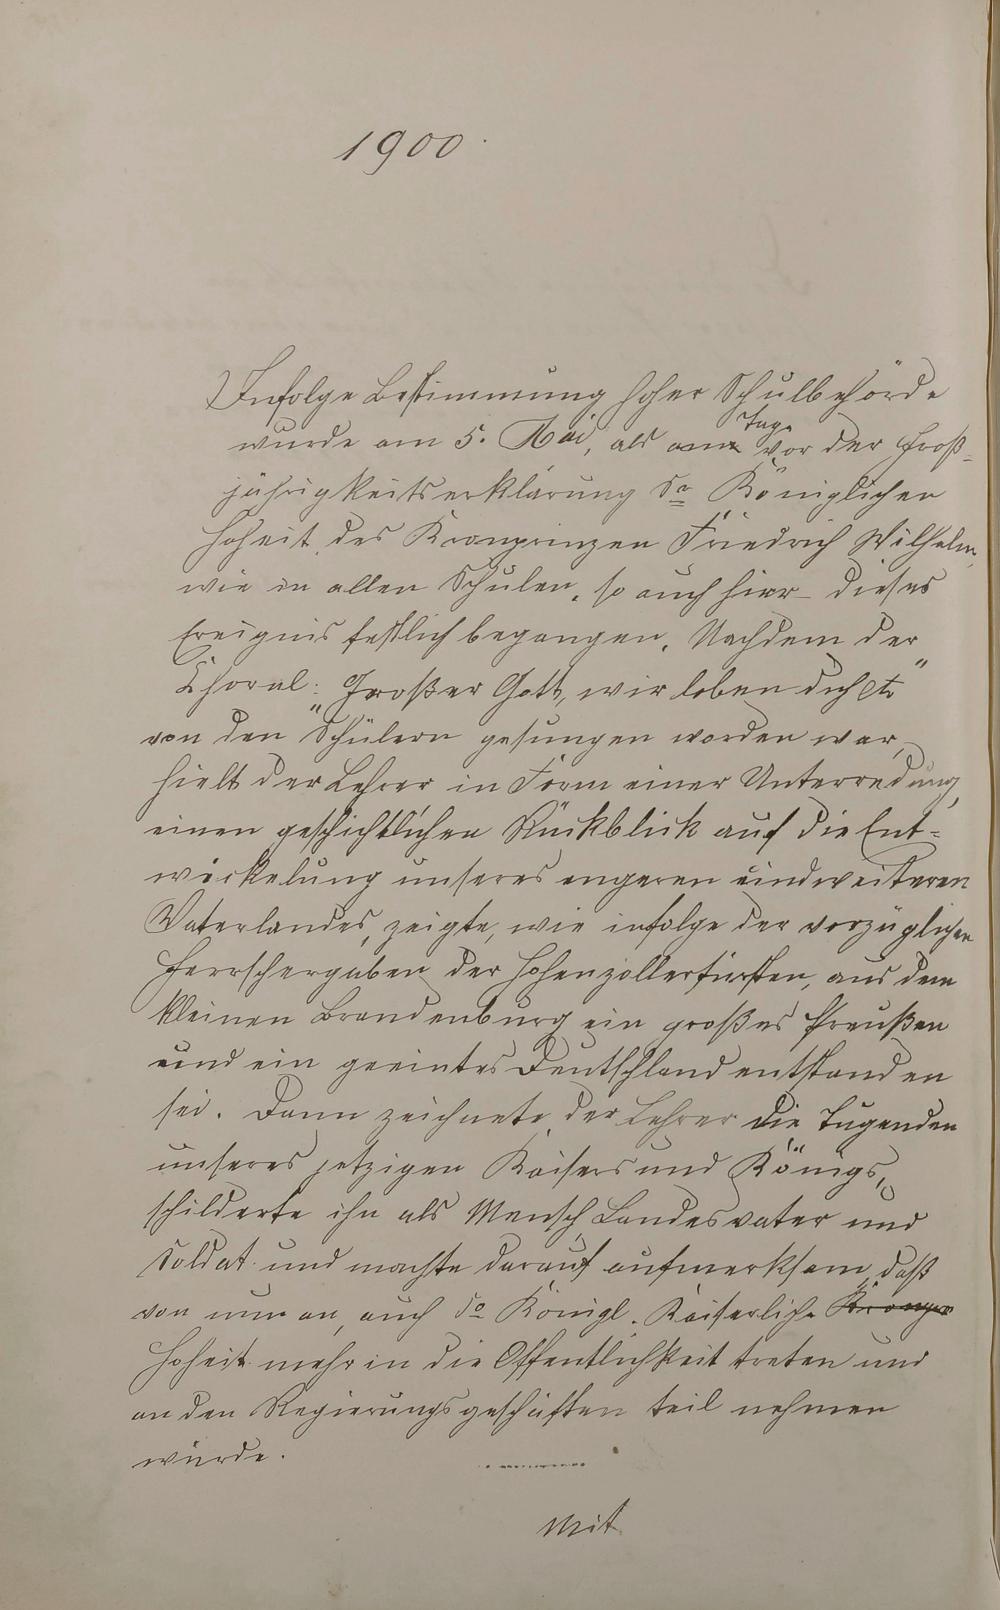 1900.
Infolge Bestimmung hoher Schulbehörde
wurde am 5. Mai, als am Tage vor der Groß-
jährigkeitserklärung Sr Königlichen
Hoheit des Kronprinzen Friedrich Wilhelm,
wie in allen Schulen, so auch hier dieses
Ereignis festlich begangen. Nachdem der
Choral: „Großer Gott, wir loben dich etc“
von den Schülern gesungen worden war,
hielt der Lehrer in Form einer Unterredung,
einen geschichtlichen Rückblick auf die Ent-
wickelung unseres engeren und weiteren
Vaterlandes, zeigte, wie infolge der vorzüglichen
Herrschergaben der Hohenzollerfürsten, aus dem
kleinen Brandenburg ein großes Preußen
und ein geeintes Deutschland entstanden
sei. Dann zeichnete der Lehrer die Tugenden
unseres jetzigen Kaisers und Königs,
schilderte ihn als Mensch Landesvater und
Soldat und machte darauf aufmerksam, daß
von nun an, auch Se Königl. Kaiserliche Kronpr
Hoheit mehr in die Öffentlichkeit treten und
an den Regierungsgeschäften teil nehmen
würde.
Mit